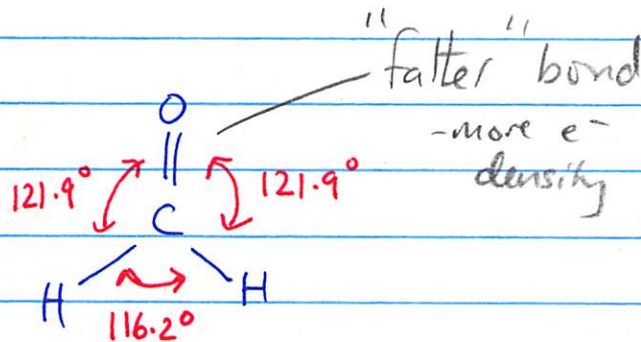 "fatter" bond
-more e⁻
density
O
121.9° 121.9°
C
H H
116.2°